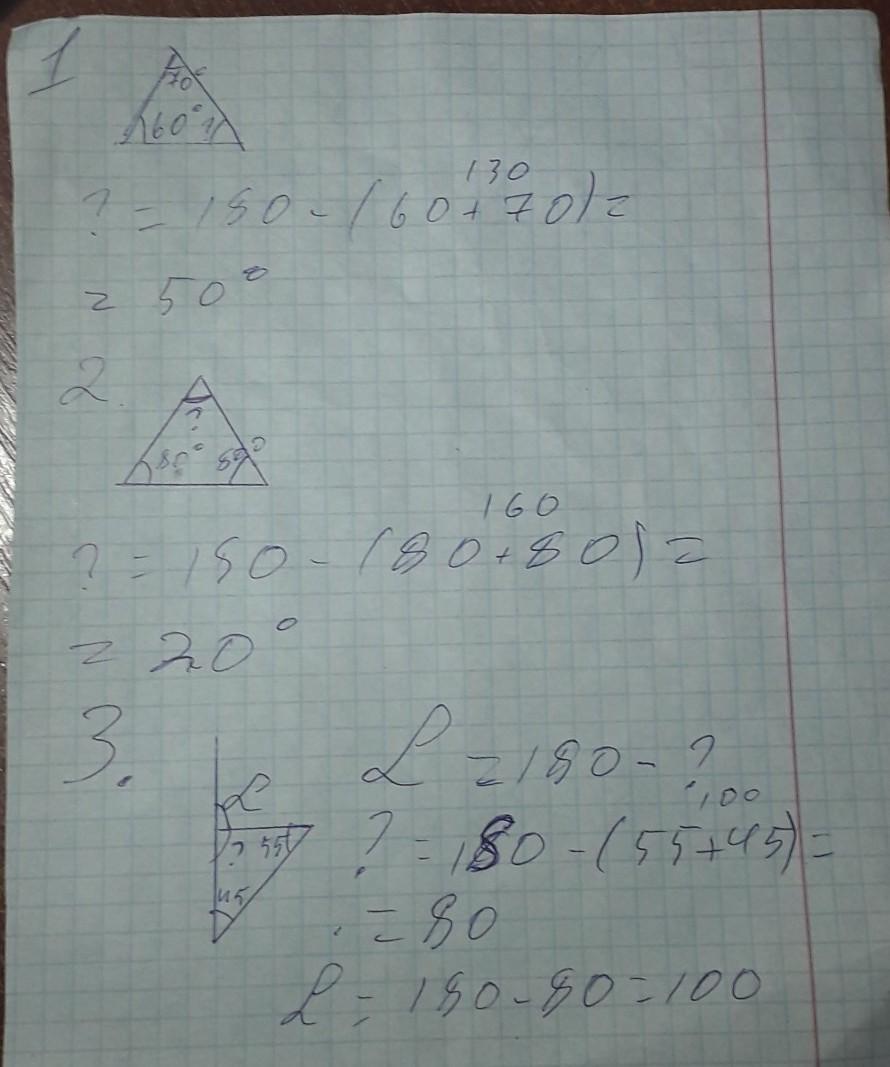 1
70°
60° ?
130
? = 180 - (60+70) =
= 50°
2.
?
80° 80°
160
? = 180 - (80+80) =
= 20°
3.
L = 180 - ?
L
100
? 55
? = 180 - (55+45) =
45
= 80
L = 180 - 80 = 100